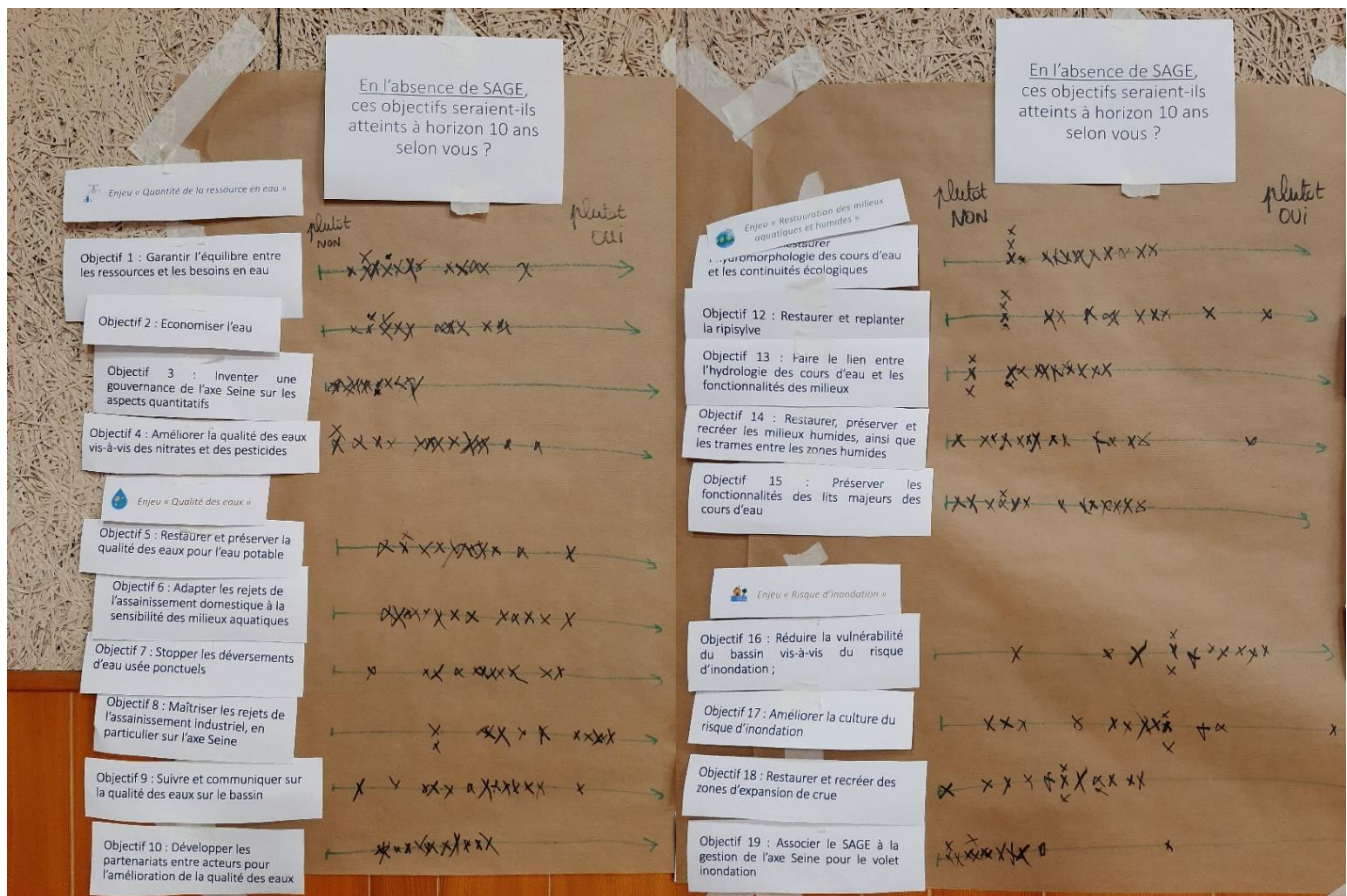 En l'absence de SAGE,
ces objectifs seraient-ils
atteints à horizon 10 ans
selon vous ?
Enjeu « Quantité de la ressource en eau »
plutôt
NON
plutot
OUi
Objectif 1 : Garantir l'équilibre entre
les ressources et les besoins en eau
Objectif 2 : Economiser l'eau
Objectif 3 : Inventer une
gouvernance de l'axe Seine sur les
aspects quantitatifs
Objectif 4 : Améliorer la qualité des eaux
vis-à-vis des nitrates et des pesticides
Enjeu « Qualité des eaux »
Objectif 5 : Restaurer et préserver la
qualité des eaux pour l'eau potable
Objectif 6 : Adapter les rejets de
l'assainissement domestique à la
sensibilité des milieux aquatiques
Objectif 7 : Stopper les déversements
d'eau usée ponctuels
Objectif 8 : Maîtriser les rejets de
l'assainissement industriel, en
particulier sur l'axe Seine
Objectif 9 : Suivre et communiquer sur
la qualité des eaux sur le bassin
Objectif 10 : Développer les
partenariats entre acteurs pour
l'amélioration de la qualité des eaux
En l'absence de SAGE,
ces objectifs seraient-ils
atteints à horizon 10 ans
selon vous ?
plutot
NON
plutot
OUi
Enjeu « Restauration des milieux
aquatiques et humides »
l'hydromorphologie des cours d'eau
et les continuités écologiques
Objectif 12 : Restaurer et replanter
la ripisylve
Objectif 13 : Faire le lien entre
l'hydrologie des cours d'eau et les
fonctionnalités des milieux
Objectif 14 : Restaurer, préserver et
recréer les milieux humides, ainsi que
les trames entre les zones humides
Objectif 15 : Préserver les
fonctionnalités des lits majeurs des
cours d'eau
Enjeu « Risque d'inondation »
Objectif 16 : Réduire la vulnérabilité
du bassin vis-à-vis du risque
d'inondation ;
Objectif 17 : Améliorer la culture du
risque d'inondation
Objectif 18 : Restaurer et recréer des
zones d'expansion de crue
Objectif 19 : Associer le SAGE à la
gestion de l'axe Seine pour le volet
inondation